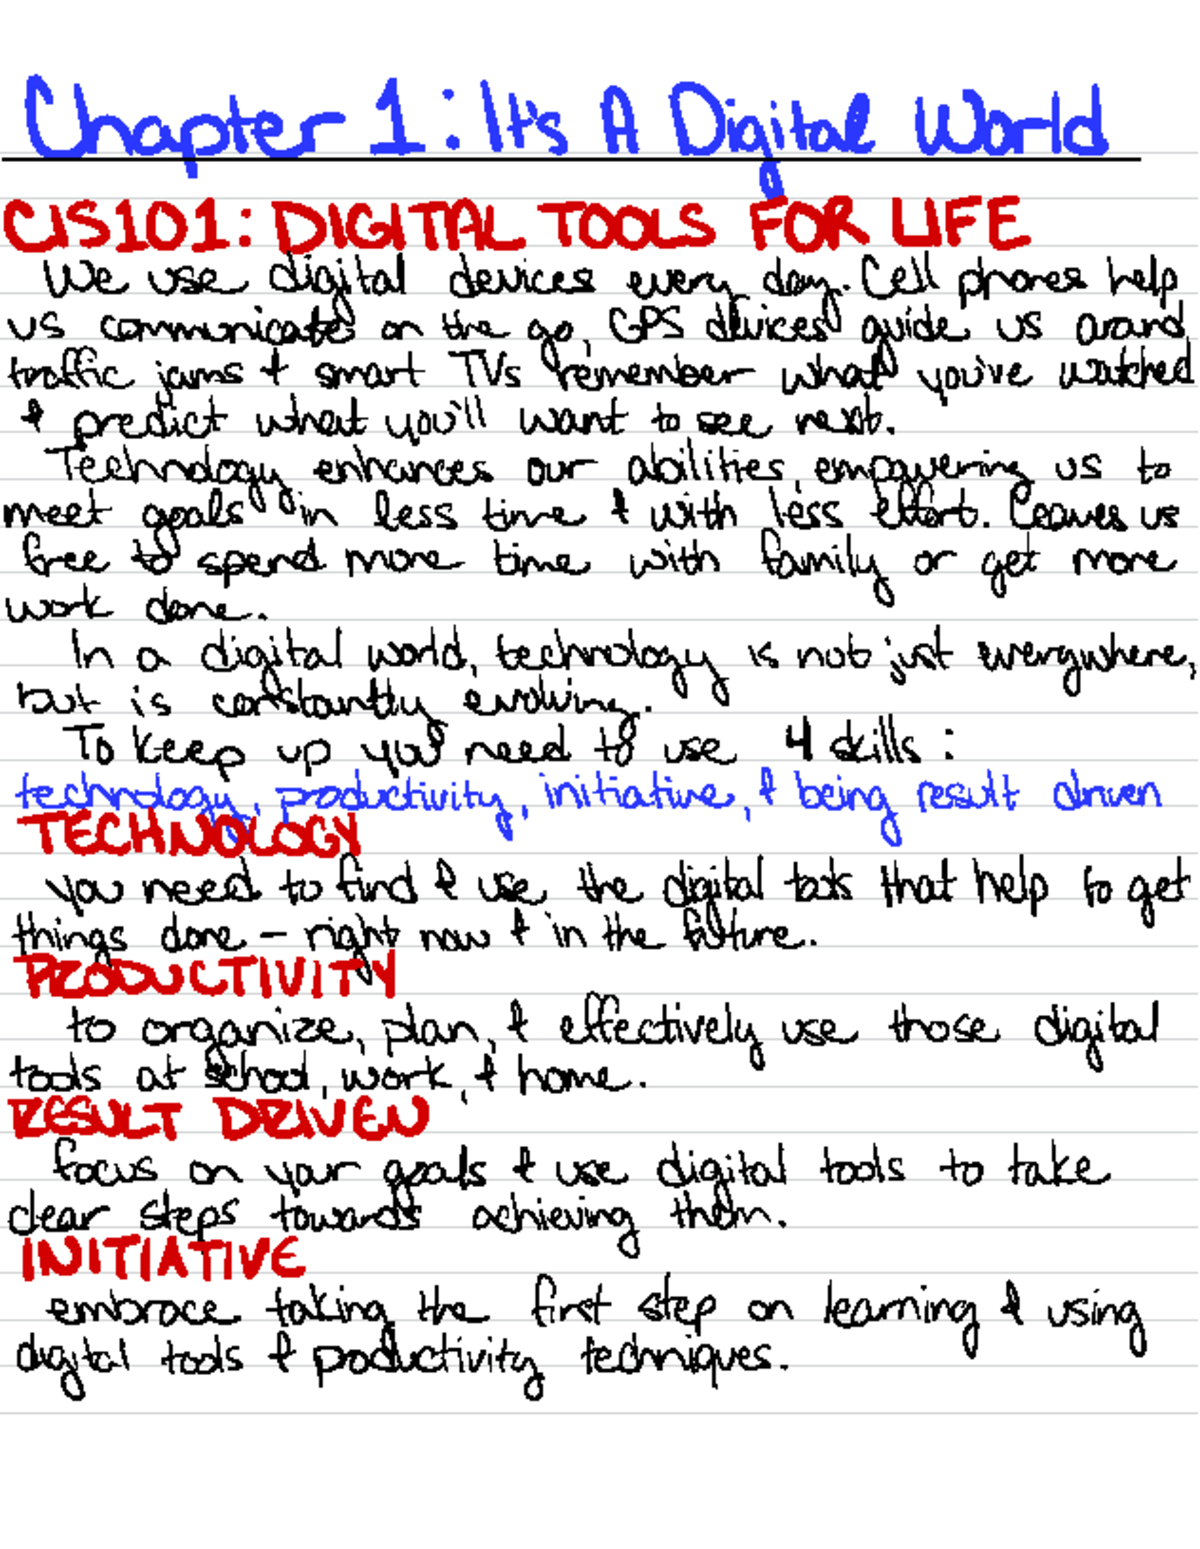 Chapter 1: It's A Digital World
CIS101: DIGITAL TOOLS FOR LIFE
We use digital devices every day. Cell phones help
us communicate on the go, GPS devices guide us around
traffic jams & smart TVs remember what you've watched
& predict what you'll want to see next.
Technology enhances our abilities, empowering us to
meet goals in less time & with less effort. Leaves us
free to spend more time with family or get more
work done.
In a digital world, technology is not just everywhere,
but is constantly evolving.
To keep up you need to use 4 skills:
technology, productivity, initiative, & being result driven
TECHNOLOGY
you need to find & use the digital tools that help to get
things done - right now & in the future.
PRODUCTIVITY
to organize, plan, & effectively use those digital
tools at school, work, & home.
RESULT DRIVEN
focus on your goals & use digital tools to take
clear steps towards achieving them.
INITIATIVE
embrace taking the first step on learning & using
digital tools & productivity techniques.